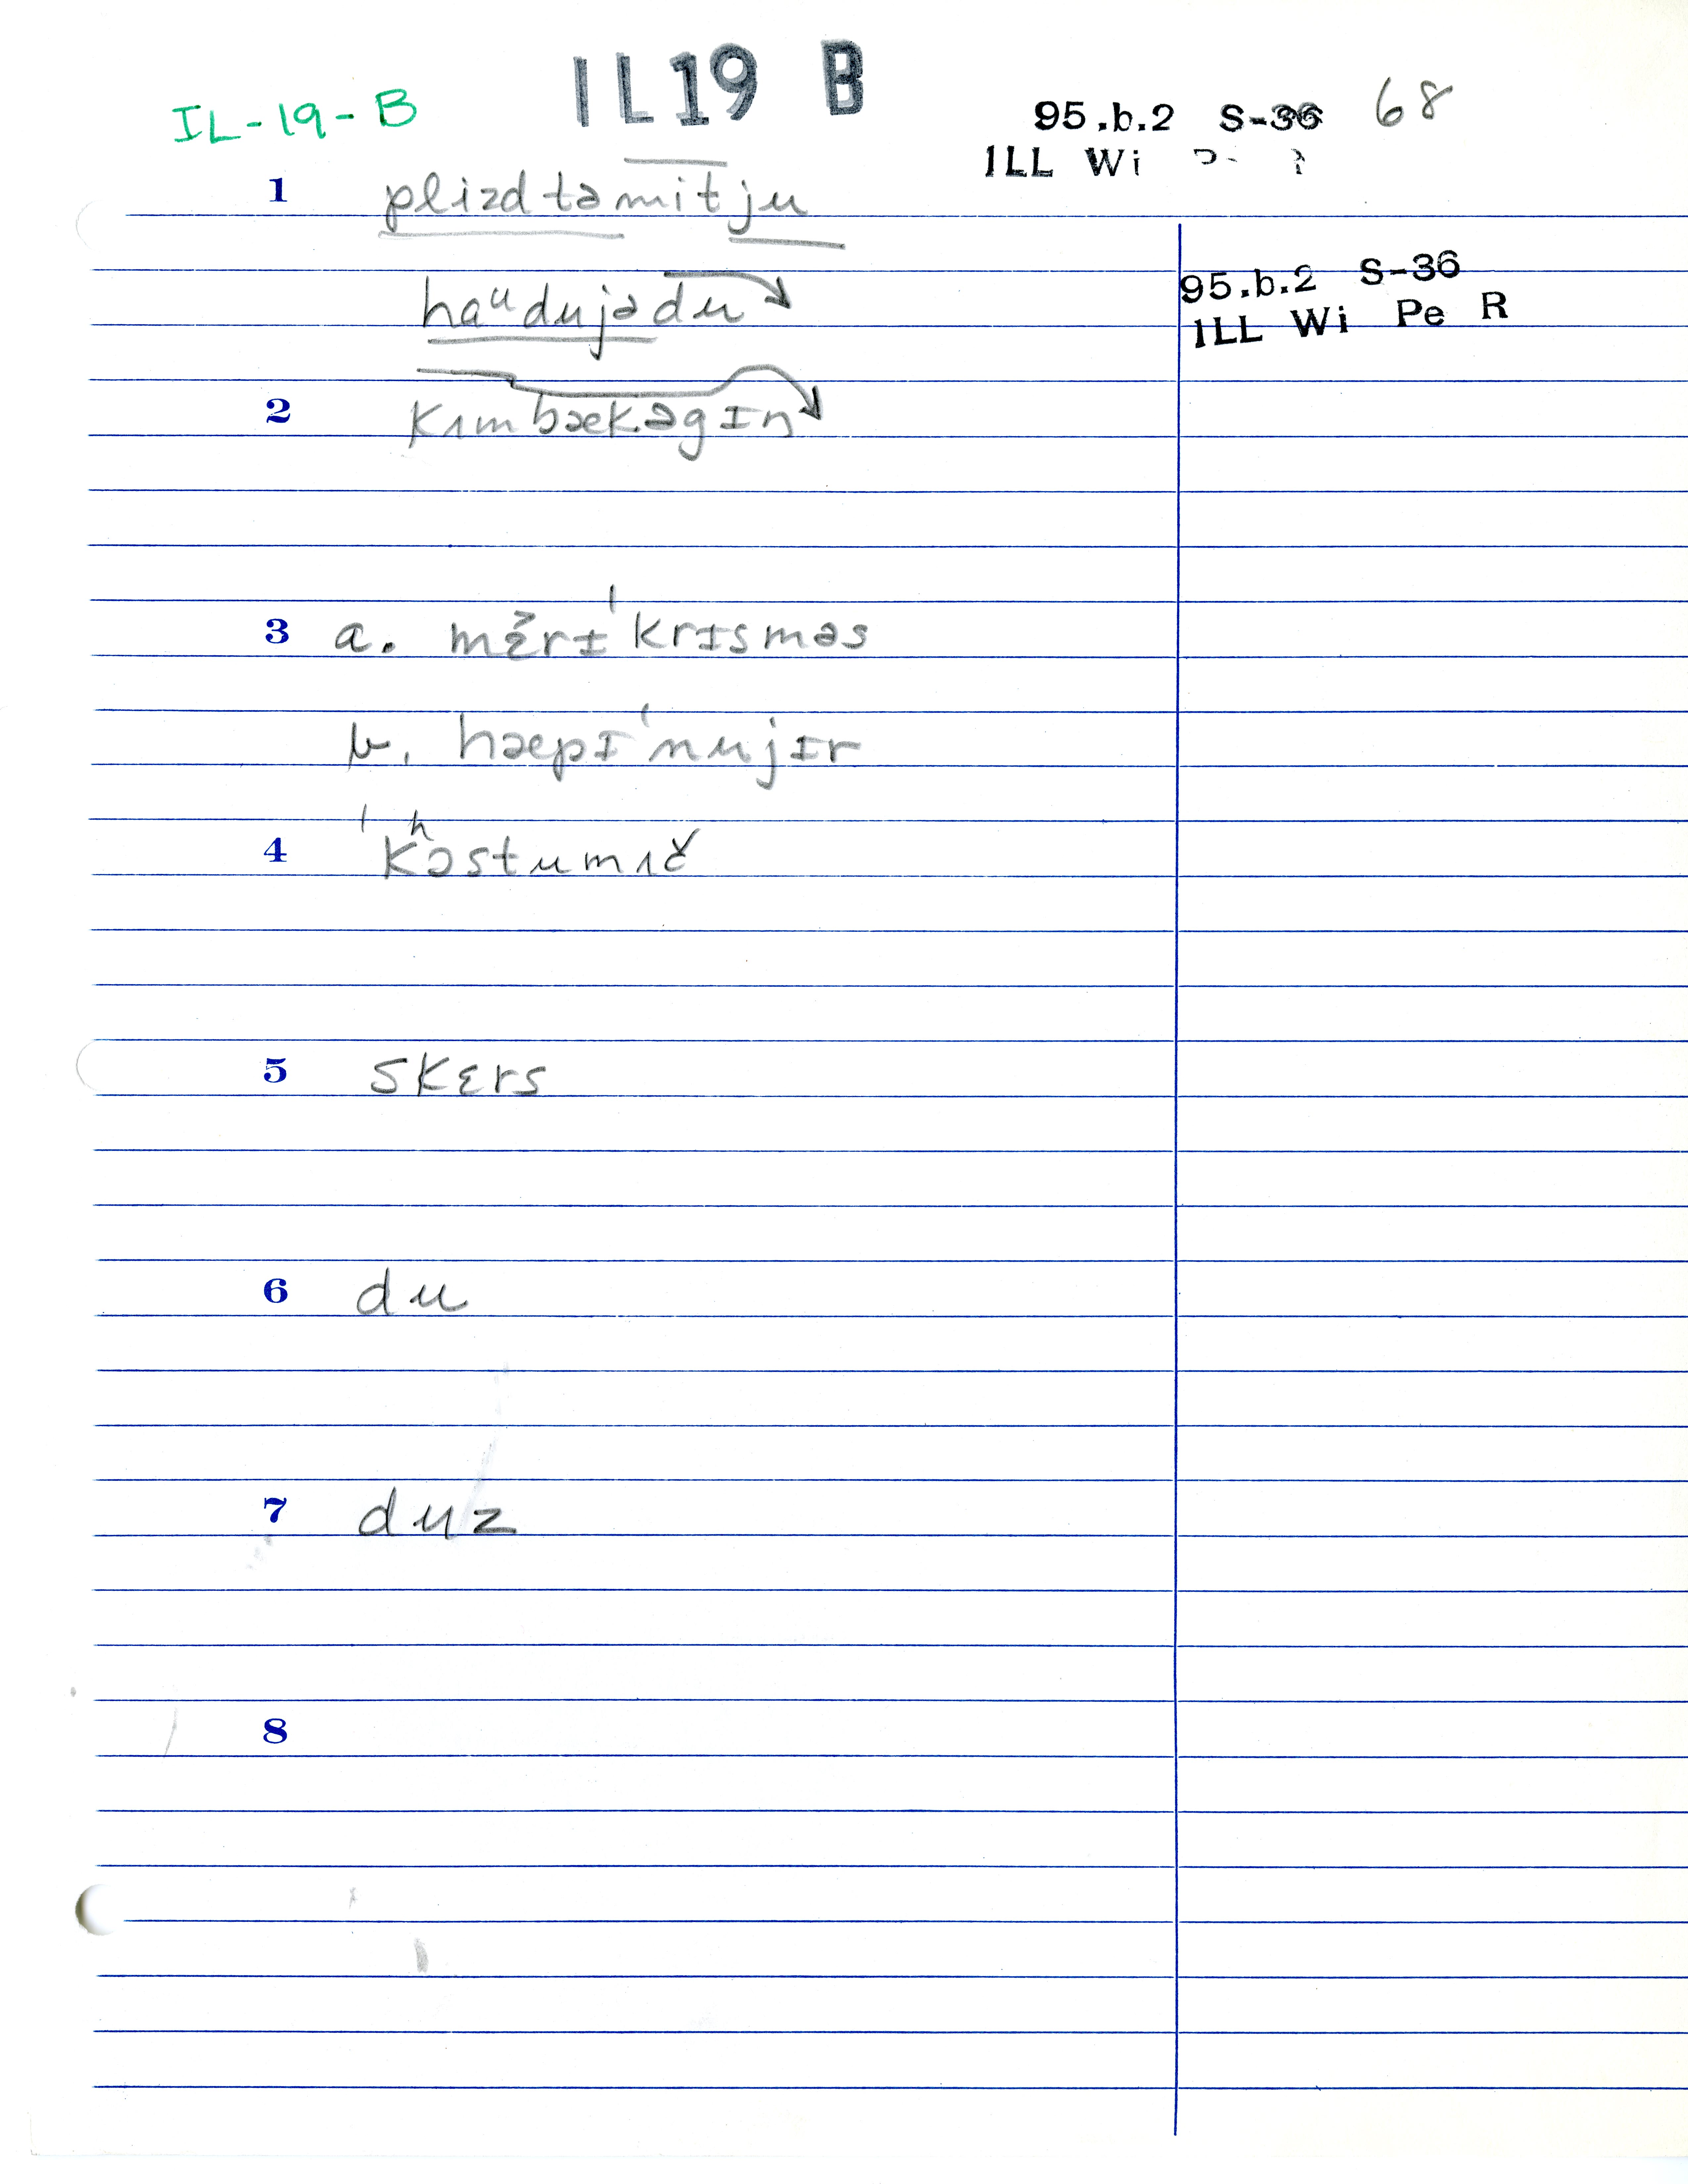 IL-19-B
IL19 B
95.b.2 S-36 68
ILL Wi
1 plizdtəmitju
haᵘdujədu
95.b.2 S-36
ILL Wi Pe R
2 kʌmbækəgɪn
3 a. mɛ̌rɪ'krɪsməs
b. hæpɪ'nujɪr
4 'kʰəstumʌč
5 skɛrs
6 du
7 duz
8